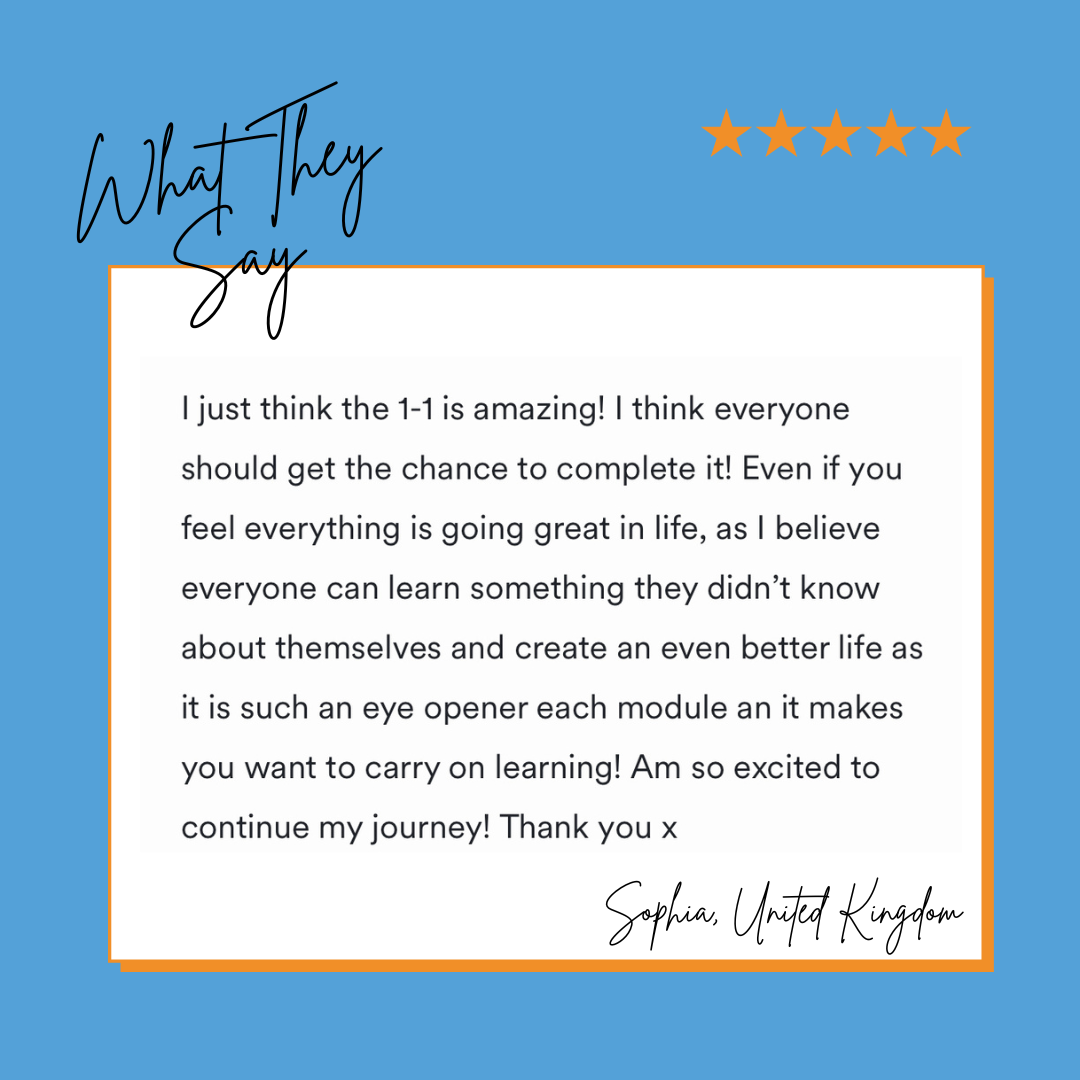 What They
Say
I just think the 1-1 is amazing! I think everyone
should get the chance to complete it! Even if you
feel everything is going great in life, as I believe
everyone can learn something they didn’t know
about themselves and create an even better life as
it is such an eye opener each module an it makes
you want to carry on learning! Am so excited to
continue my journey! Thank you x
Sophia, United Kingdom